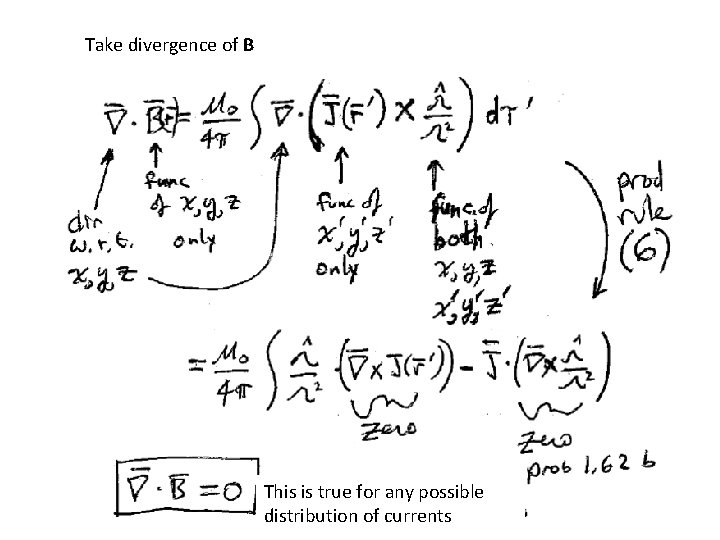 Take divergence of B
∇̄ · B̄(r̄) = μ₀/4π ∫ ∇̄ · ( J̄(r̄') × 𝓇̂/𝓇² ) dτ'
div w.r.t. x,y,z
func of x,y,z only
func of x',y',z' only
func. of both x,y,z x',y',z'
prod rule (6)
= μ₀/4π ∫ 𝓇̂/𝓇² · (∇̄ × J̄(r̄')) − J̄ · (∇̄ × 𝓇̂/𝓇²)
zero
zero
prob 1.62 b
∇̄ · B̄ = 0
This is true for any possible
distribution of currents